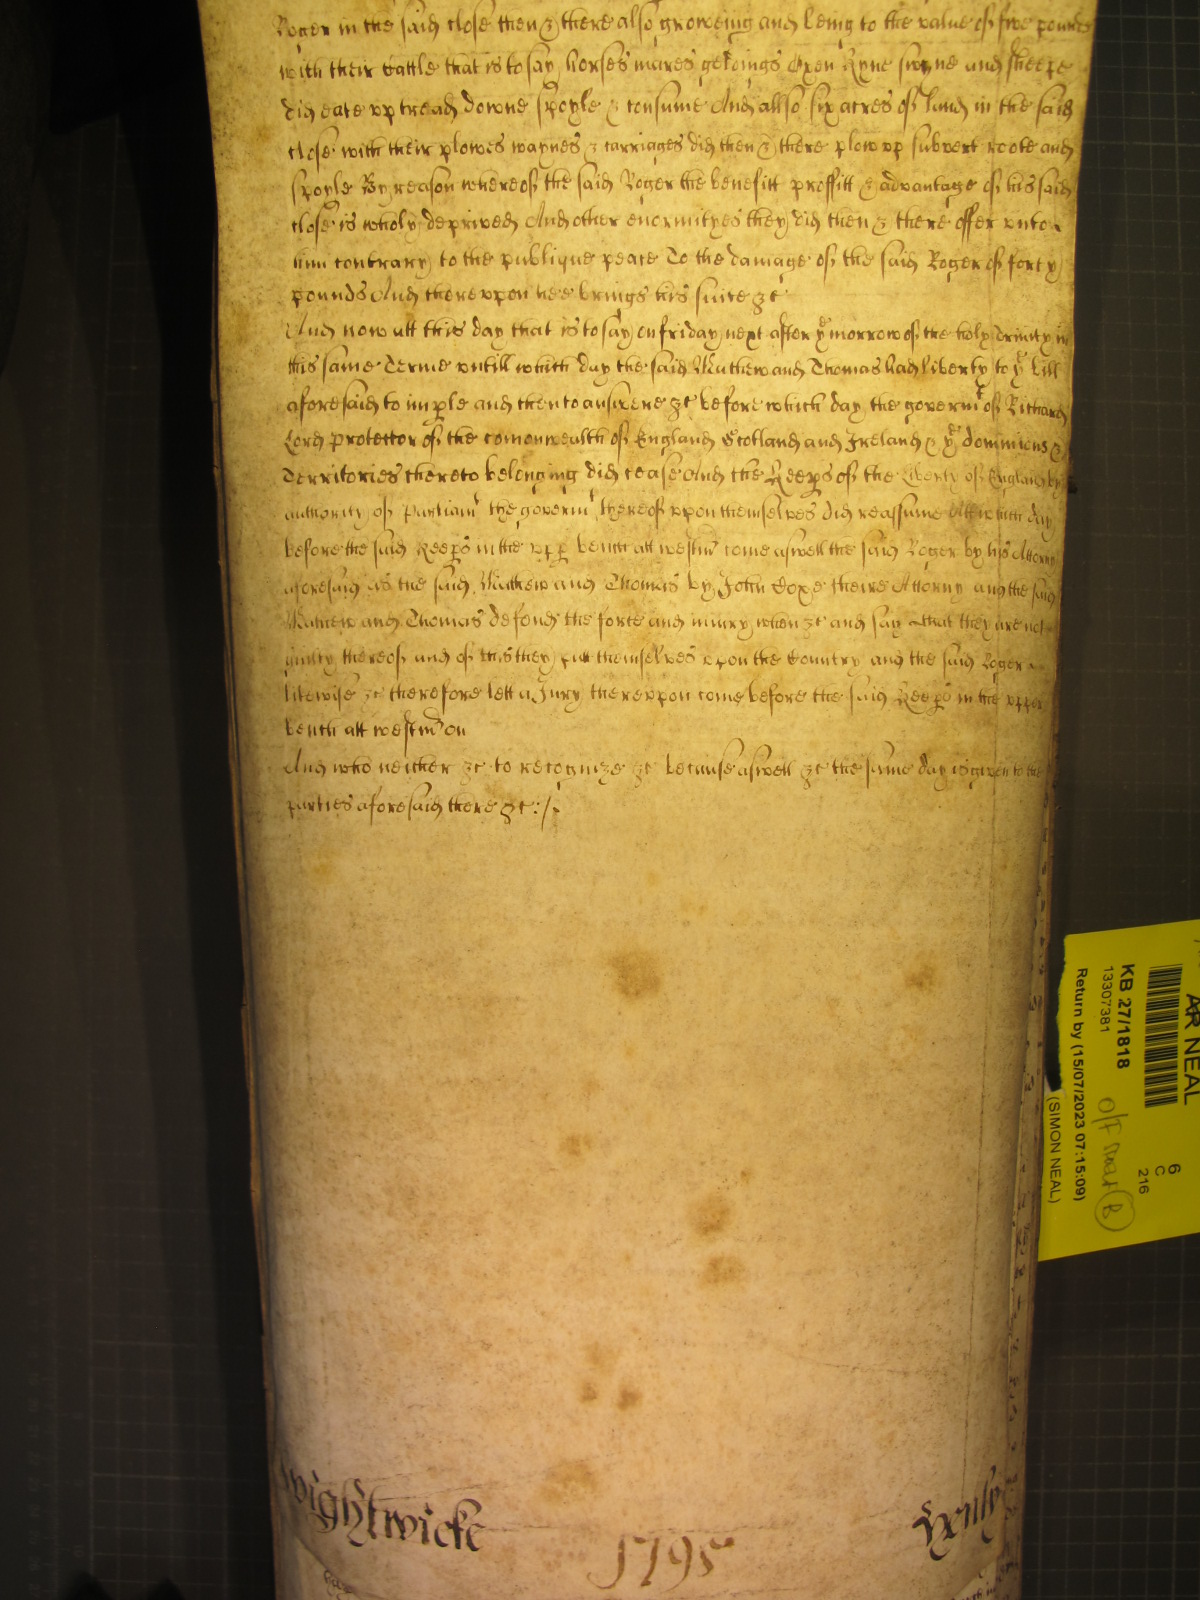 Roger in the said close then & there also groweing and being to the value of five pounds
with their Cattle that is to say horses mares geldings Oxen Kyne swyne and sheepe
did eate vp tread downe spoyle & consume And allso six acres of land in the said
close with their plowes waynes & carriages did then & there plow vp subvert roote and
spoyle By reason whereof the said Roger the benefitt proffitt & advantage of his said
close is wholy deprived And other enormityes they did then & there offer vnto
him contrary to the publique peace To the damage of the said Roger of forty
pounds And therevpon hee brings his suite &c
And now att this day that is to say on friday next after ye morrow of the holy Trinity in
this same Terme vntill which day the said Mathew and Thomas had liberty to ye bill
aforesaid to imple and then to answere &c before which day the governmt of Richard
Lord protector of the comonwealth of England Scotland and Ireland & ye dominions &
Territories thereto belonging did cease And the Keeps of the liberty of England by
authority of Parliamt the governmt thereof vpon themselves did reassume Att which day
before the said Keeps in the vpp bench att westmr come aswell the said Roger by his Attorny
aforesaid as the said Mathew and Thomas by John Coxe theire Attorny and the said
Mathew and Thomas defend the force and iniury when &c and say that they are not
guilty thereof and of this they put themselves vpon the Country and the said Roger
likewise &c therefore lett a Jury therevpon come before the said Keeps in the vpper
bench att westmr on
And who neither &c to recognize &c because aswell &c the same day is given to the
parties aforesaid there &c :/
Wightwicke
1795
AR NEAL
KB 27/1818
13307381
Return by (15/07/2023 07:15:09)
(SIMON NEAL)
6
C
216
B